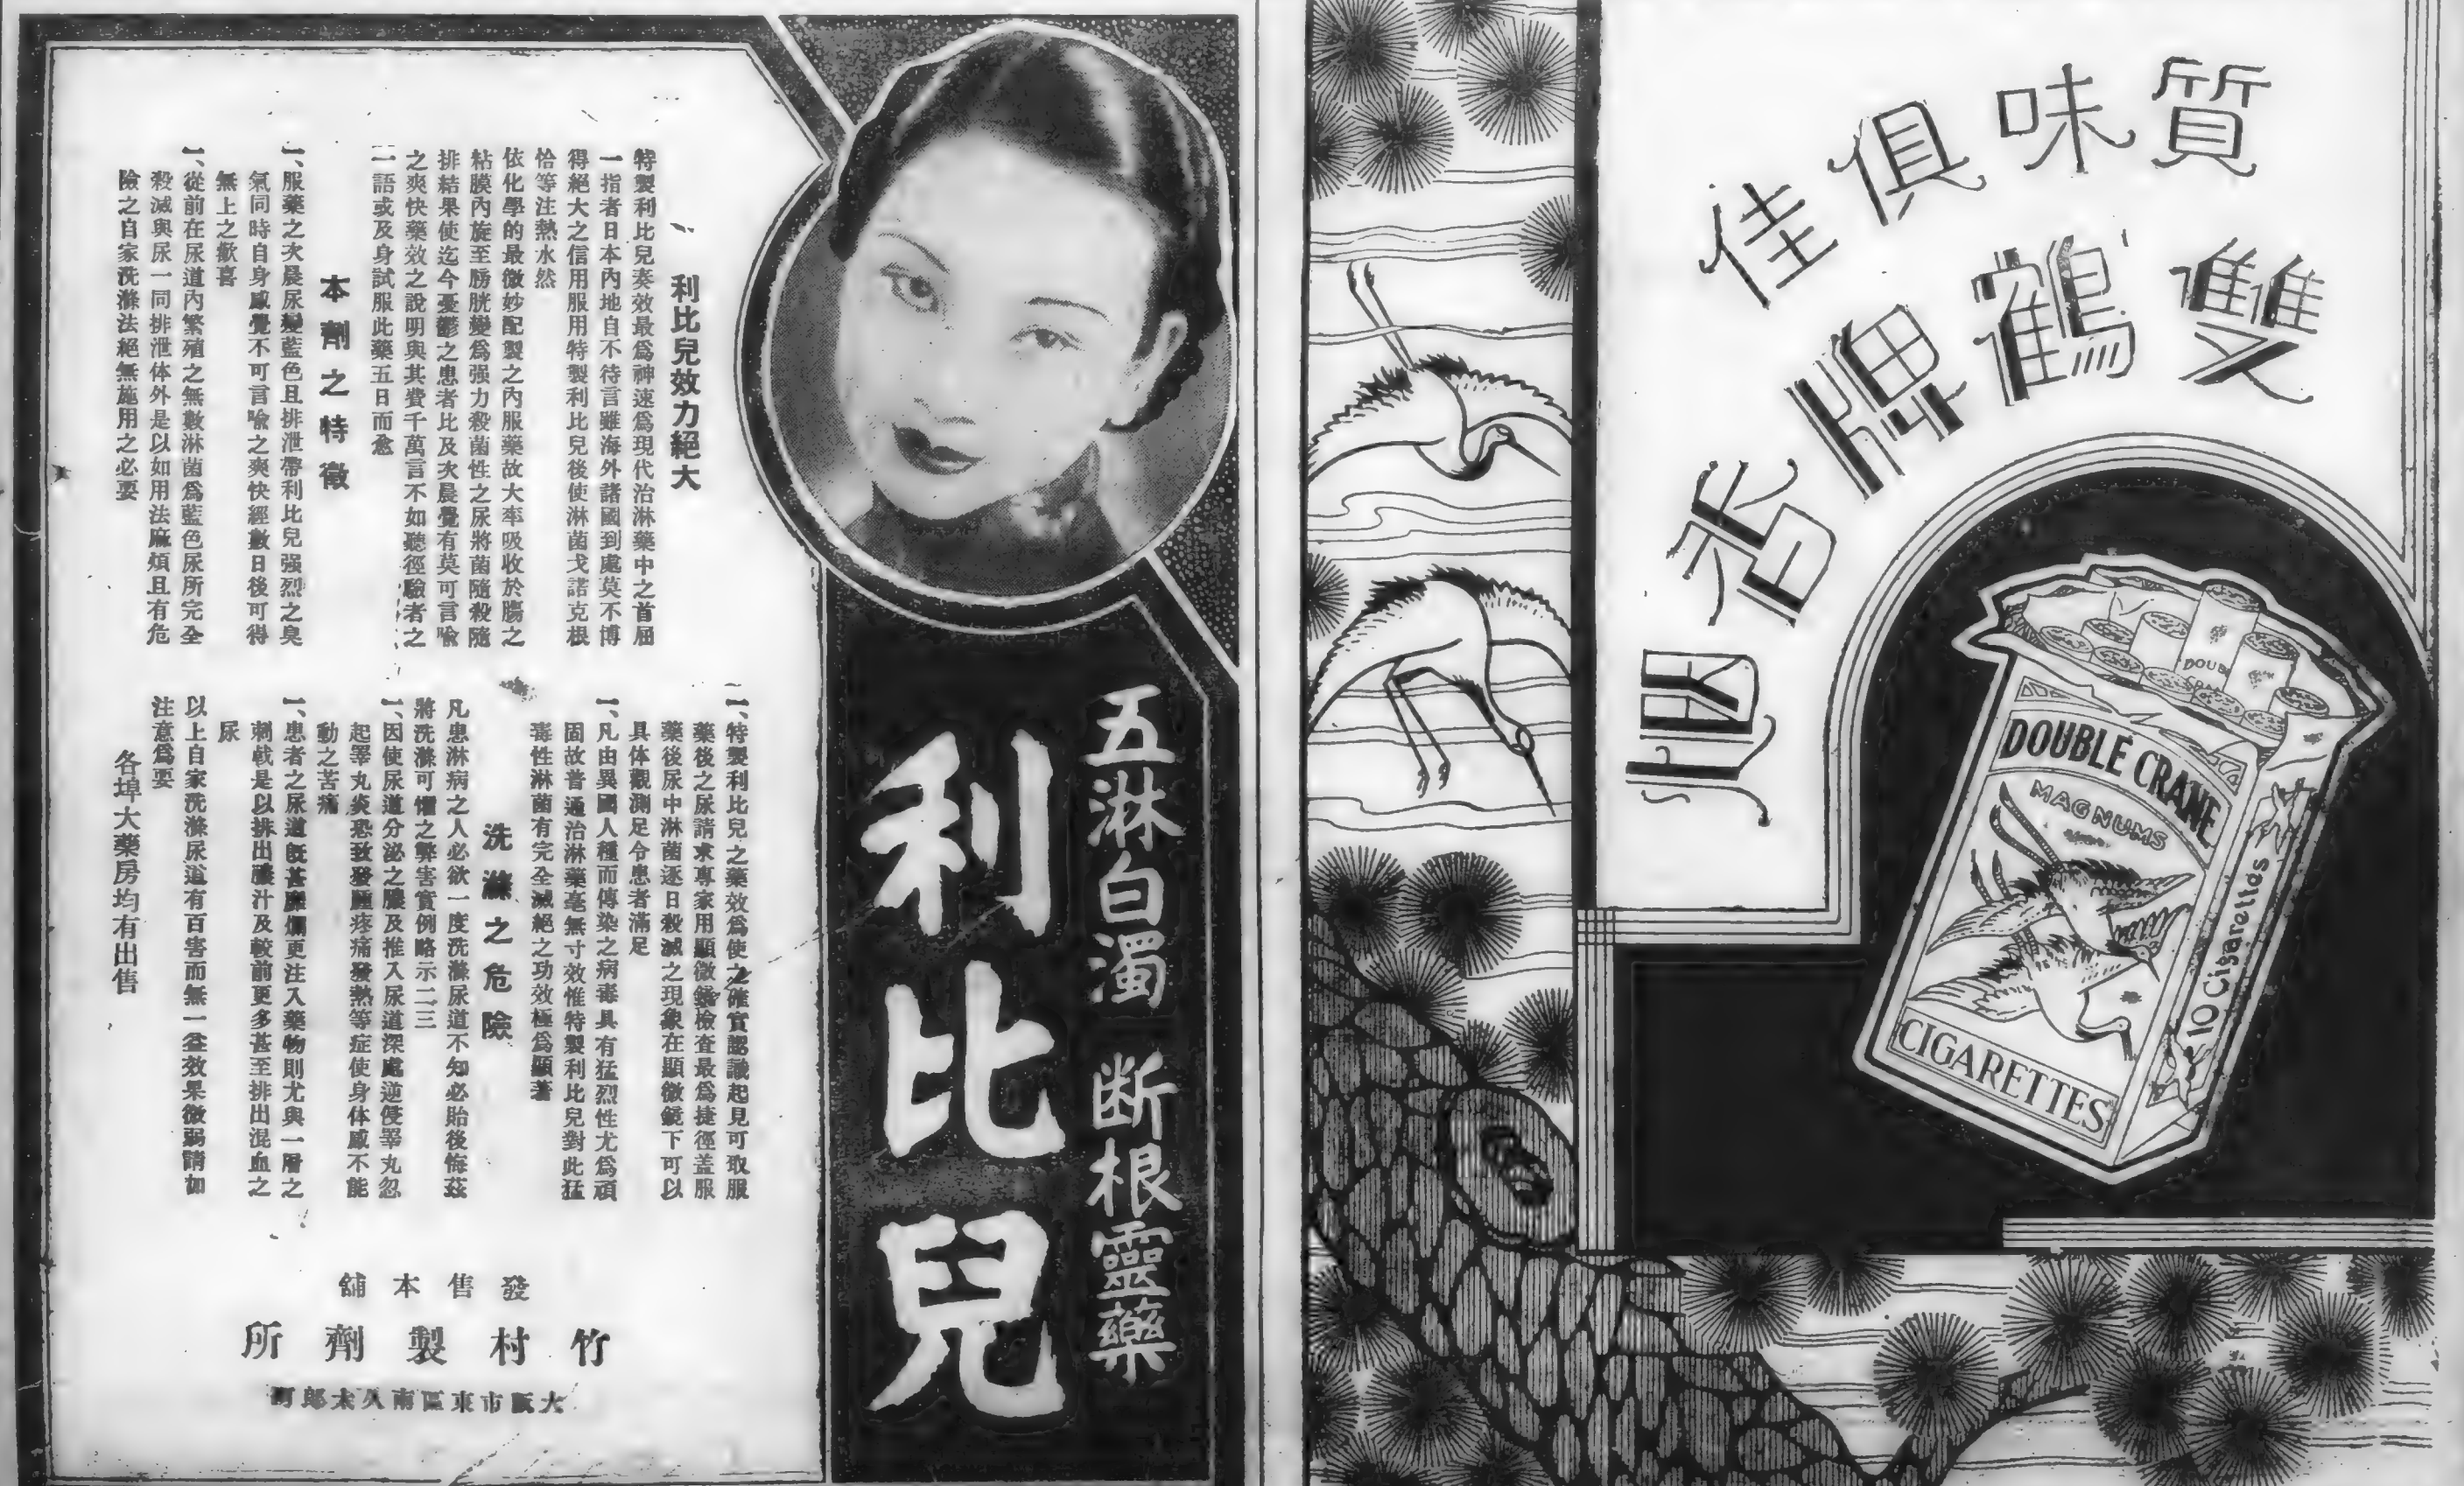 質味俱佳
雙鶴牌香烟
DOUBLE CRANE
MAGNUMS
CIGARETTES
10 Cigarettes
DOUBLE
五淋白濁 断根靈藥
利比兒
利比兒效力絕大
特製利比兒奏效最爲神速爲現代治淋藥中之首屈
一指者日本內地自不待言雖海外諸國到處莫不博
得絕大之信用服用特製利比兒後使淋菌戈諾克根
恰等注熱水然
依化學的最微妙配製之內服藥故大率吸收於膓之
粘膜內旋至膀胱變爲强力殺菌性之尿將菌隨殺隨
排結果使迄今憂鬱之患者比及次晨覺有莫可言喩
之爽快藥效之說明與其費千萬言不如聽徑驗者之
一語或及身試服此藥五日而愈
本劑之特徵
一、服藥之次晨尿變藍色且排泄帶利比兒强烈之臭
氣同時自身感覺不可言喩之爽快經數日後可得
無上之歡喜
一、從前在尿道內繁殖之無數淋菌爲藍色尿所完全
殺滅與尿一同排泄体外是以如用法麻煩且有危
險之自家洗滌法絕無施用之必要
一、特製利比兒之藥效爲使之確實認識起見可取服
藥後之尿請求專家用顯微鏡檢查最爲捷徑蓋服
藥後尿中淋菌逐日殺滅之現象在顯微鏡下可以
具体觀測足令患者滿足
一、凡由異國人種而傳染之病毒具有猛烈性尤爲頑
固故普通治淋藥毫無寸效惟特製利比兒對此猛
毒性淋菌有完全滅絕之功效極爲顯著
洗滌之危險
凡患淋病之人必欲一度洗滌尿道不知必貽後悔茲
將洗滌可懼之弊害實例略示二三
一、因使尿道分泌之膿及推入尿道深處逆侵睪丸忽
起睪丸炎恐致發腫疼痛發熱等症使身体感不能
動之苦痛
一、患者之尿道旣甚糜爛更注入藥物則尤與一層之
刺戟是以排出膿汁及較前更多甚至排出混血之
尿
以上自家洗滌尿道有百害而無一益效果微弱請如
注意爲要
各埠大藥房均有出售
發售本舖
竹村製劑所
大阪市東區南久太郎町